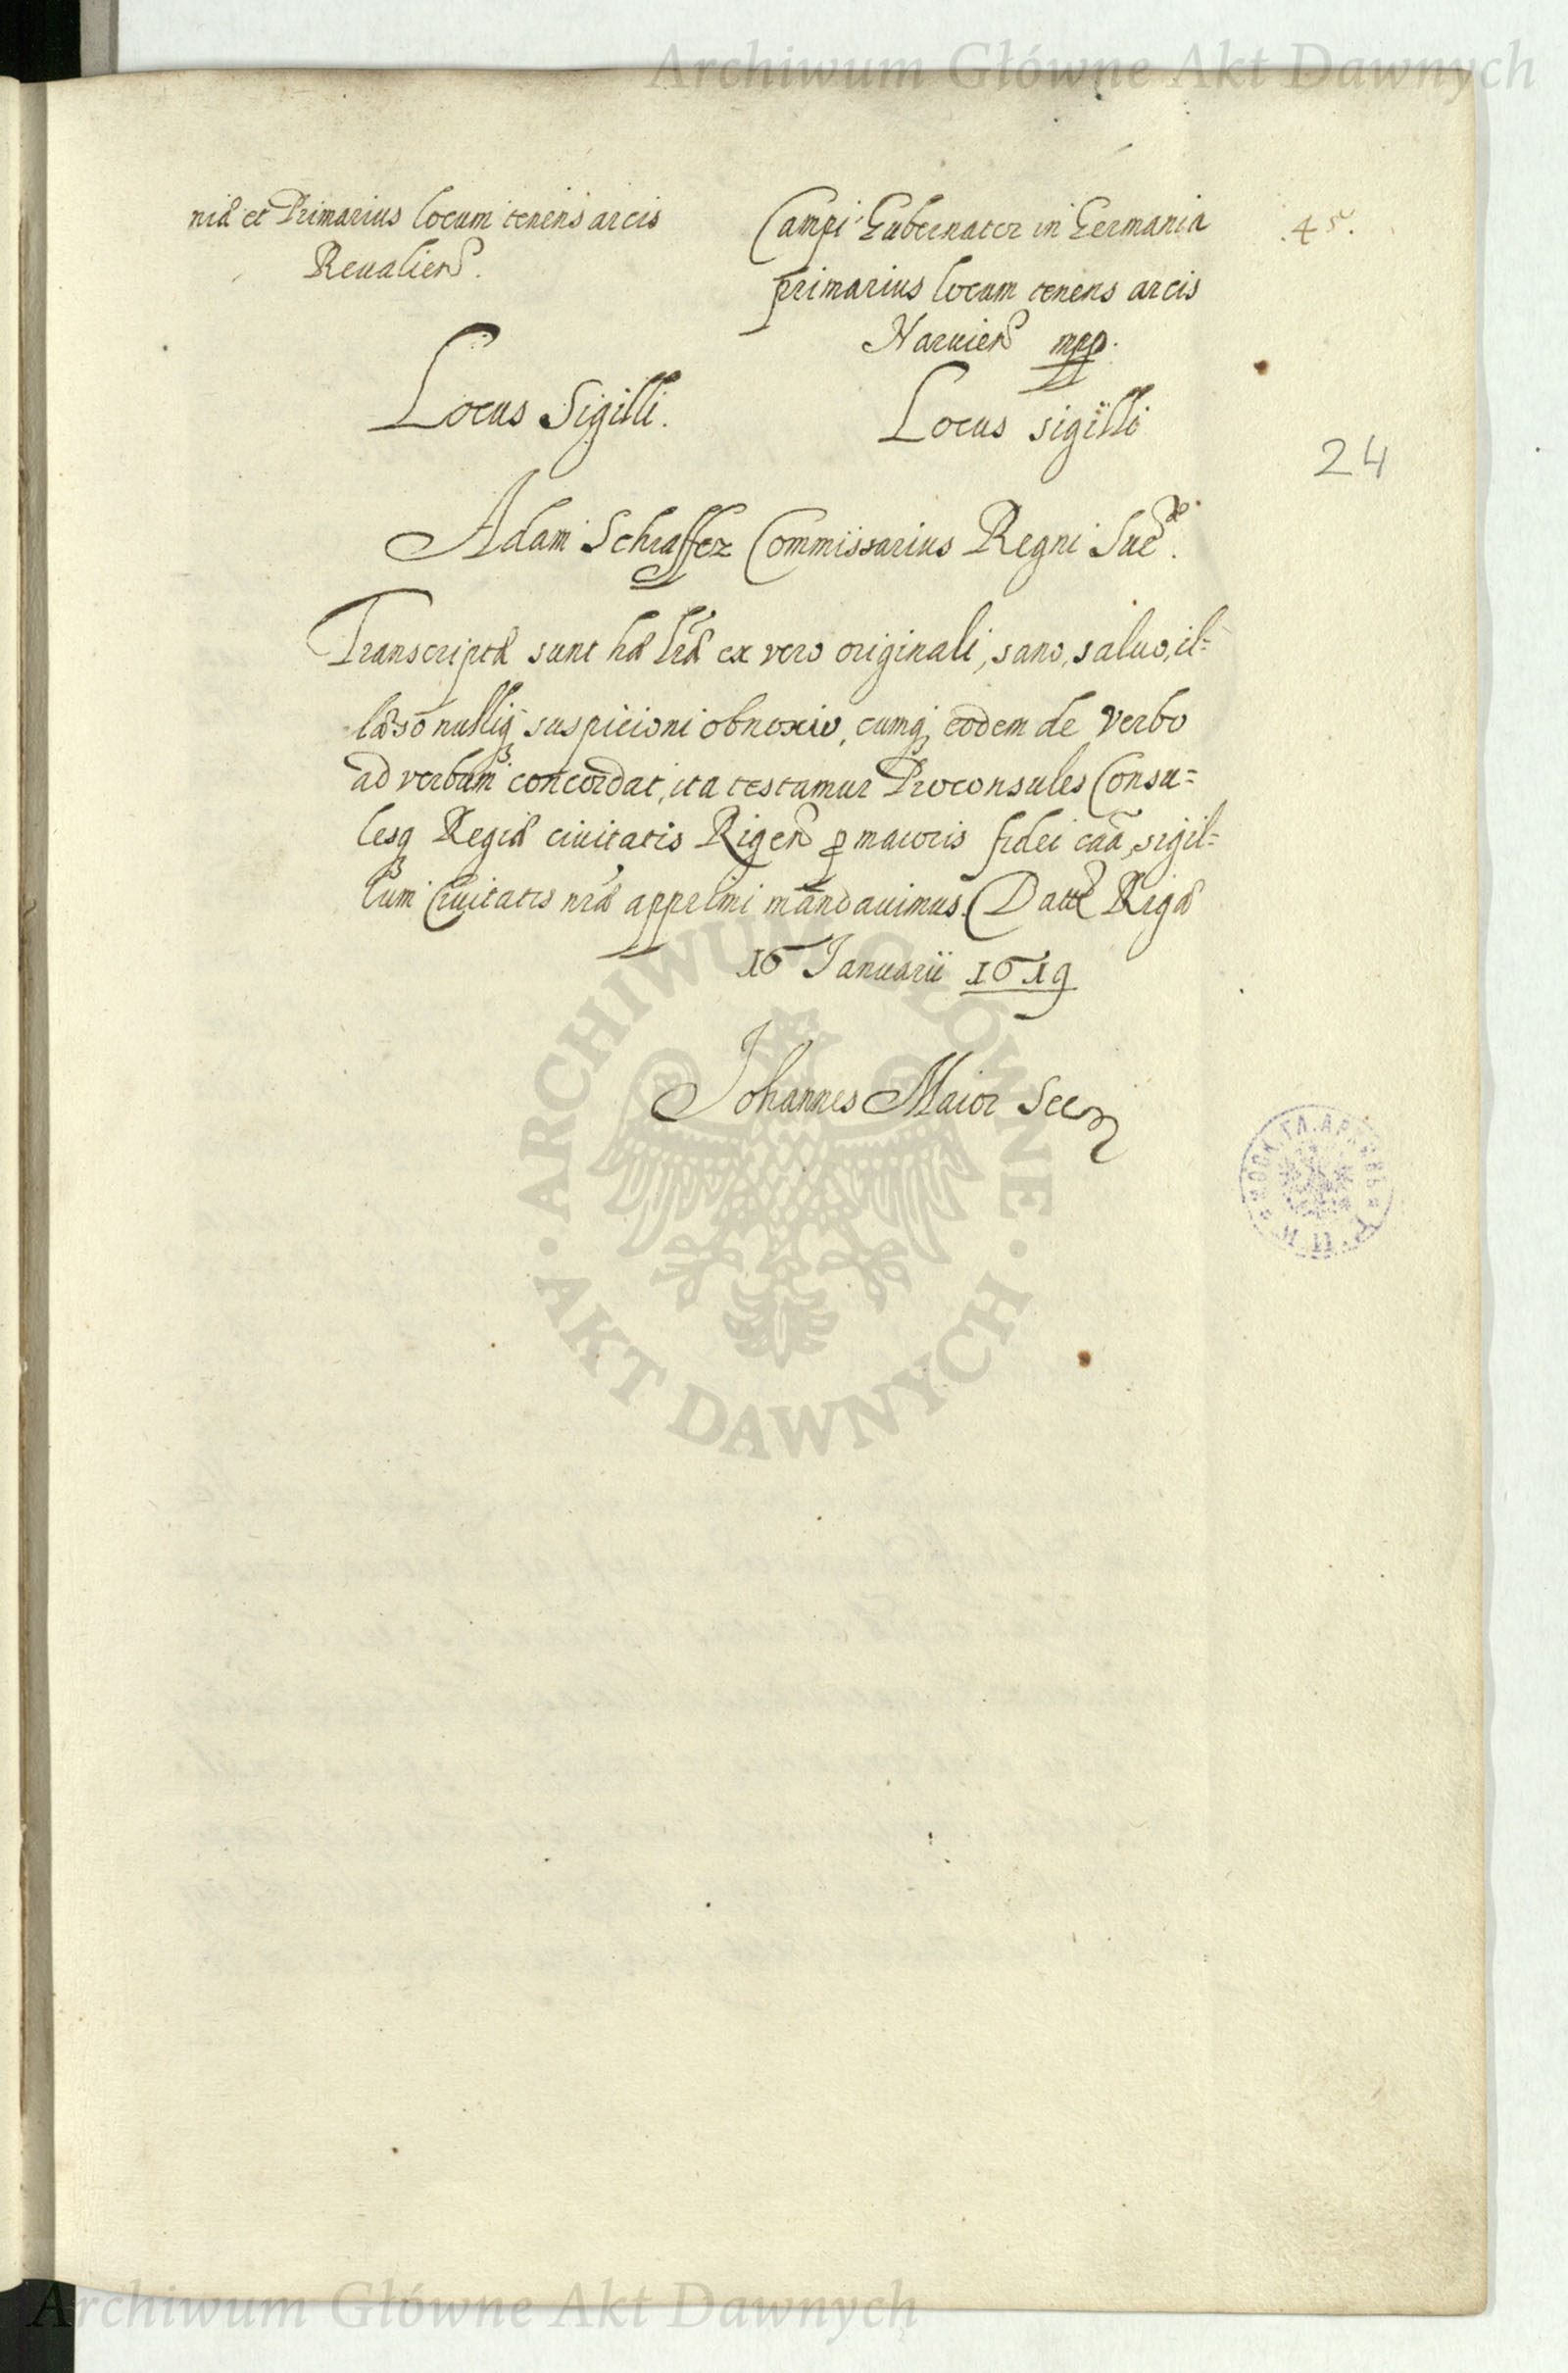 Archiwum Główne Akt Dawnych
niæ et Primarius locum tenens arcis
Reualien̄.
Campi Gubernator in Germania
primarius locum tenens arcis
Naruien̄ mpp.
.45.
Locus Sigilli.
Locus sigilli
24
Adam Schraffer Commissarius Regni Sue͠.
Transcriptæ sunt hæ lr̄æ ex vero originali, sano, saluo, il=
læso nulliq; suspicioni obnoxio, cumq; eodem de verbo
ad verbum concordat, ita testamur Proconsules Consu=
lesq; Regiæ ciuitatis Rigen̄ ꝑ maioris fidei caã, sigil=
lum Ciuitatis nr̄æ apprimi mandauimus. Datæ Rigæ
16 Januarii 1619
Johannes Maior Secr
ARCHIWUM GŁÓWNE
AKT DAWNYCH
Archiwum Główne Akt Dawnych